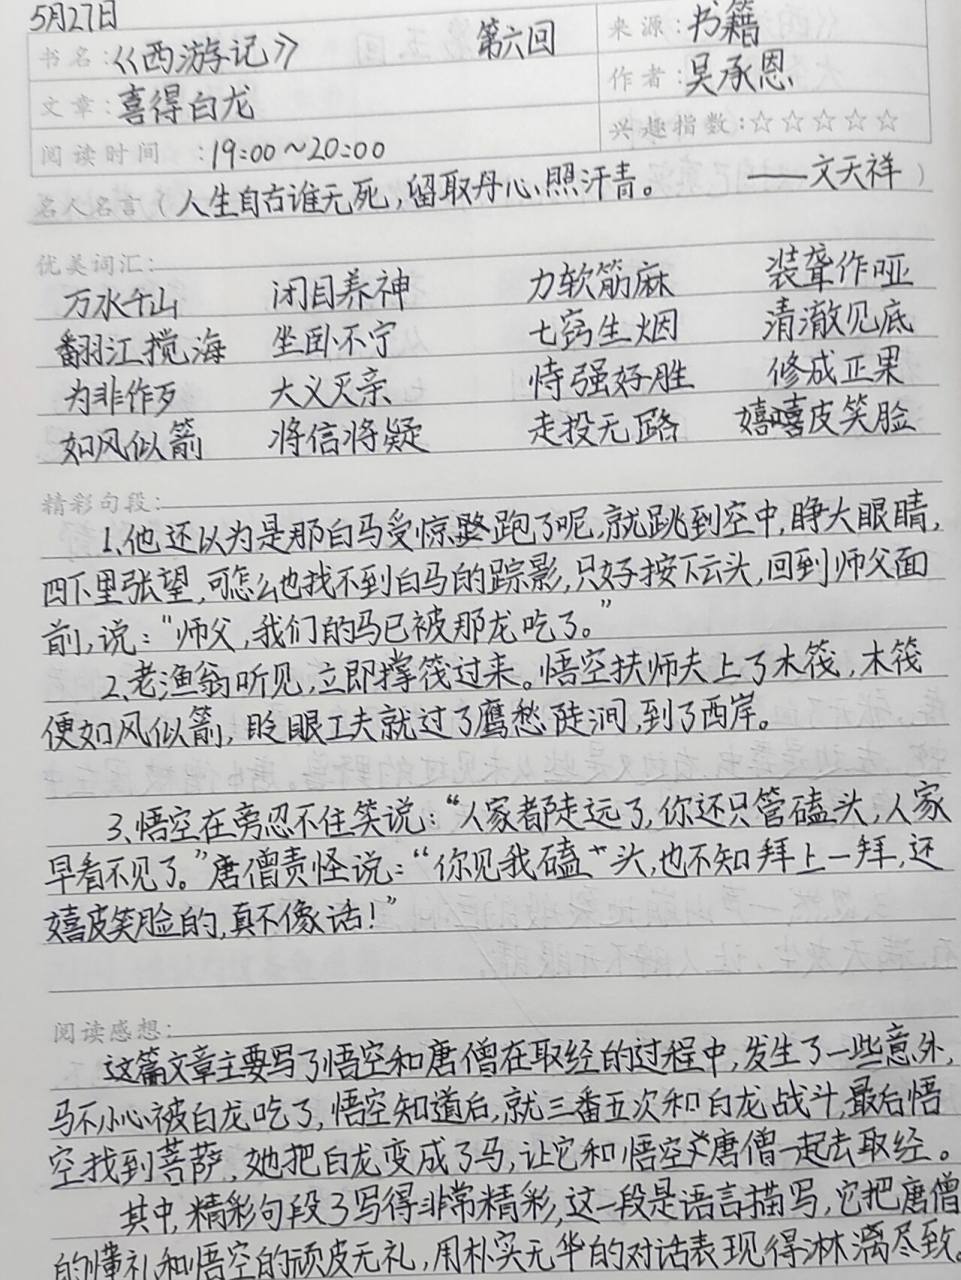 5月27日
书名：《西游记》 第六回 来源：书籍
文章：喜得白龙 作者：吴承恩
阅读时间：19:00～20:00 兴趣指数：☆☆☆☆☆
名人名言（人生自古谁无死，留取丹心照汗青。——文天祥）
优美词汇：
万水千山 闭目养神 力软筋麻 装聋作哑
翻江搅海 坐卧不宁 七窍生烟 清澈见底
为非作歹 大义灭亲 恃强好胜 修成正果
如风似箭 将信将疑 走投无路 嬉嘻皮笑脸
精彩句段：
1、他还以为是那白马受惊跑了呢，就跳到空中，睁大眼睛，
四下里张望，可怎么也找不到白马的踪影，只好按下云头，回到师父面
前，说：“师父，我们的马已被那龙吃了。”
2、老渔翁听见，立即撑筏过来。悟空扶师夫上了木筏，木筏
便如风似箭，眨眼工夫就过了鹰愁陡涧，到了西岸。
3、悟空在旁忍不住笑说：“人家都走远了，你还只管磕头，人家
早看不见了。”唐僧责怪说：“你见我磕头，也不知拜上一拜，还
嬉皮笑脸的，真不像话！”
阅读感想：
这篇文章主要写了悟空和唐僧在取经的过程中，发生了一些意外，
马不小心被白龙吃了，悟空知道后，就三番五次和白龙战斗，最后悟
空找到菩萨，她把白龙变成了马，让它和悟空唐僧一起去取经。
其中，精彩句段3写得非常精彩，这一段是语言描写，它把唐僧
的懂礼和悟空的顽皮无礼，用朴实无华的对话表现得淋漓尽致。